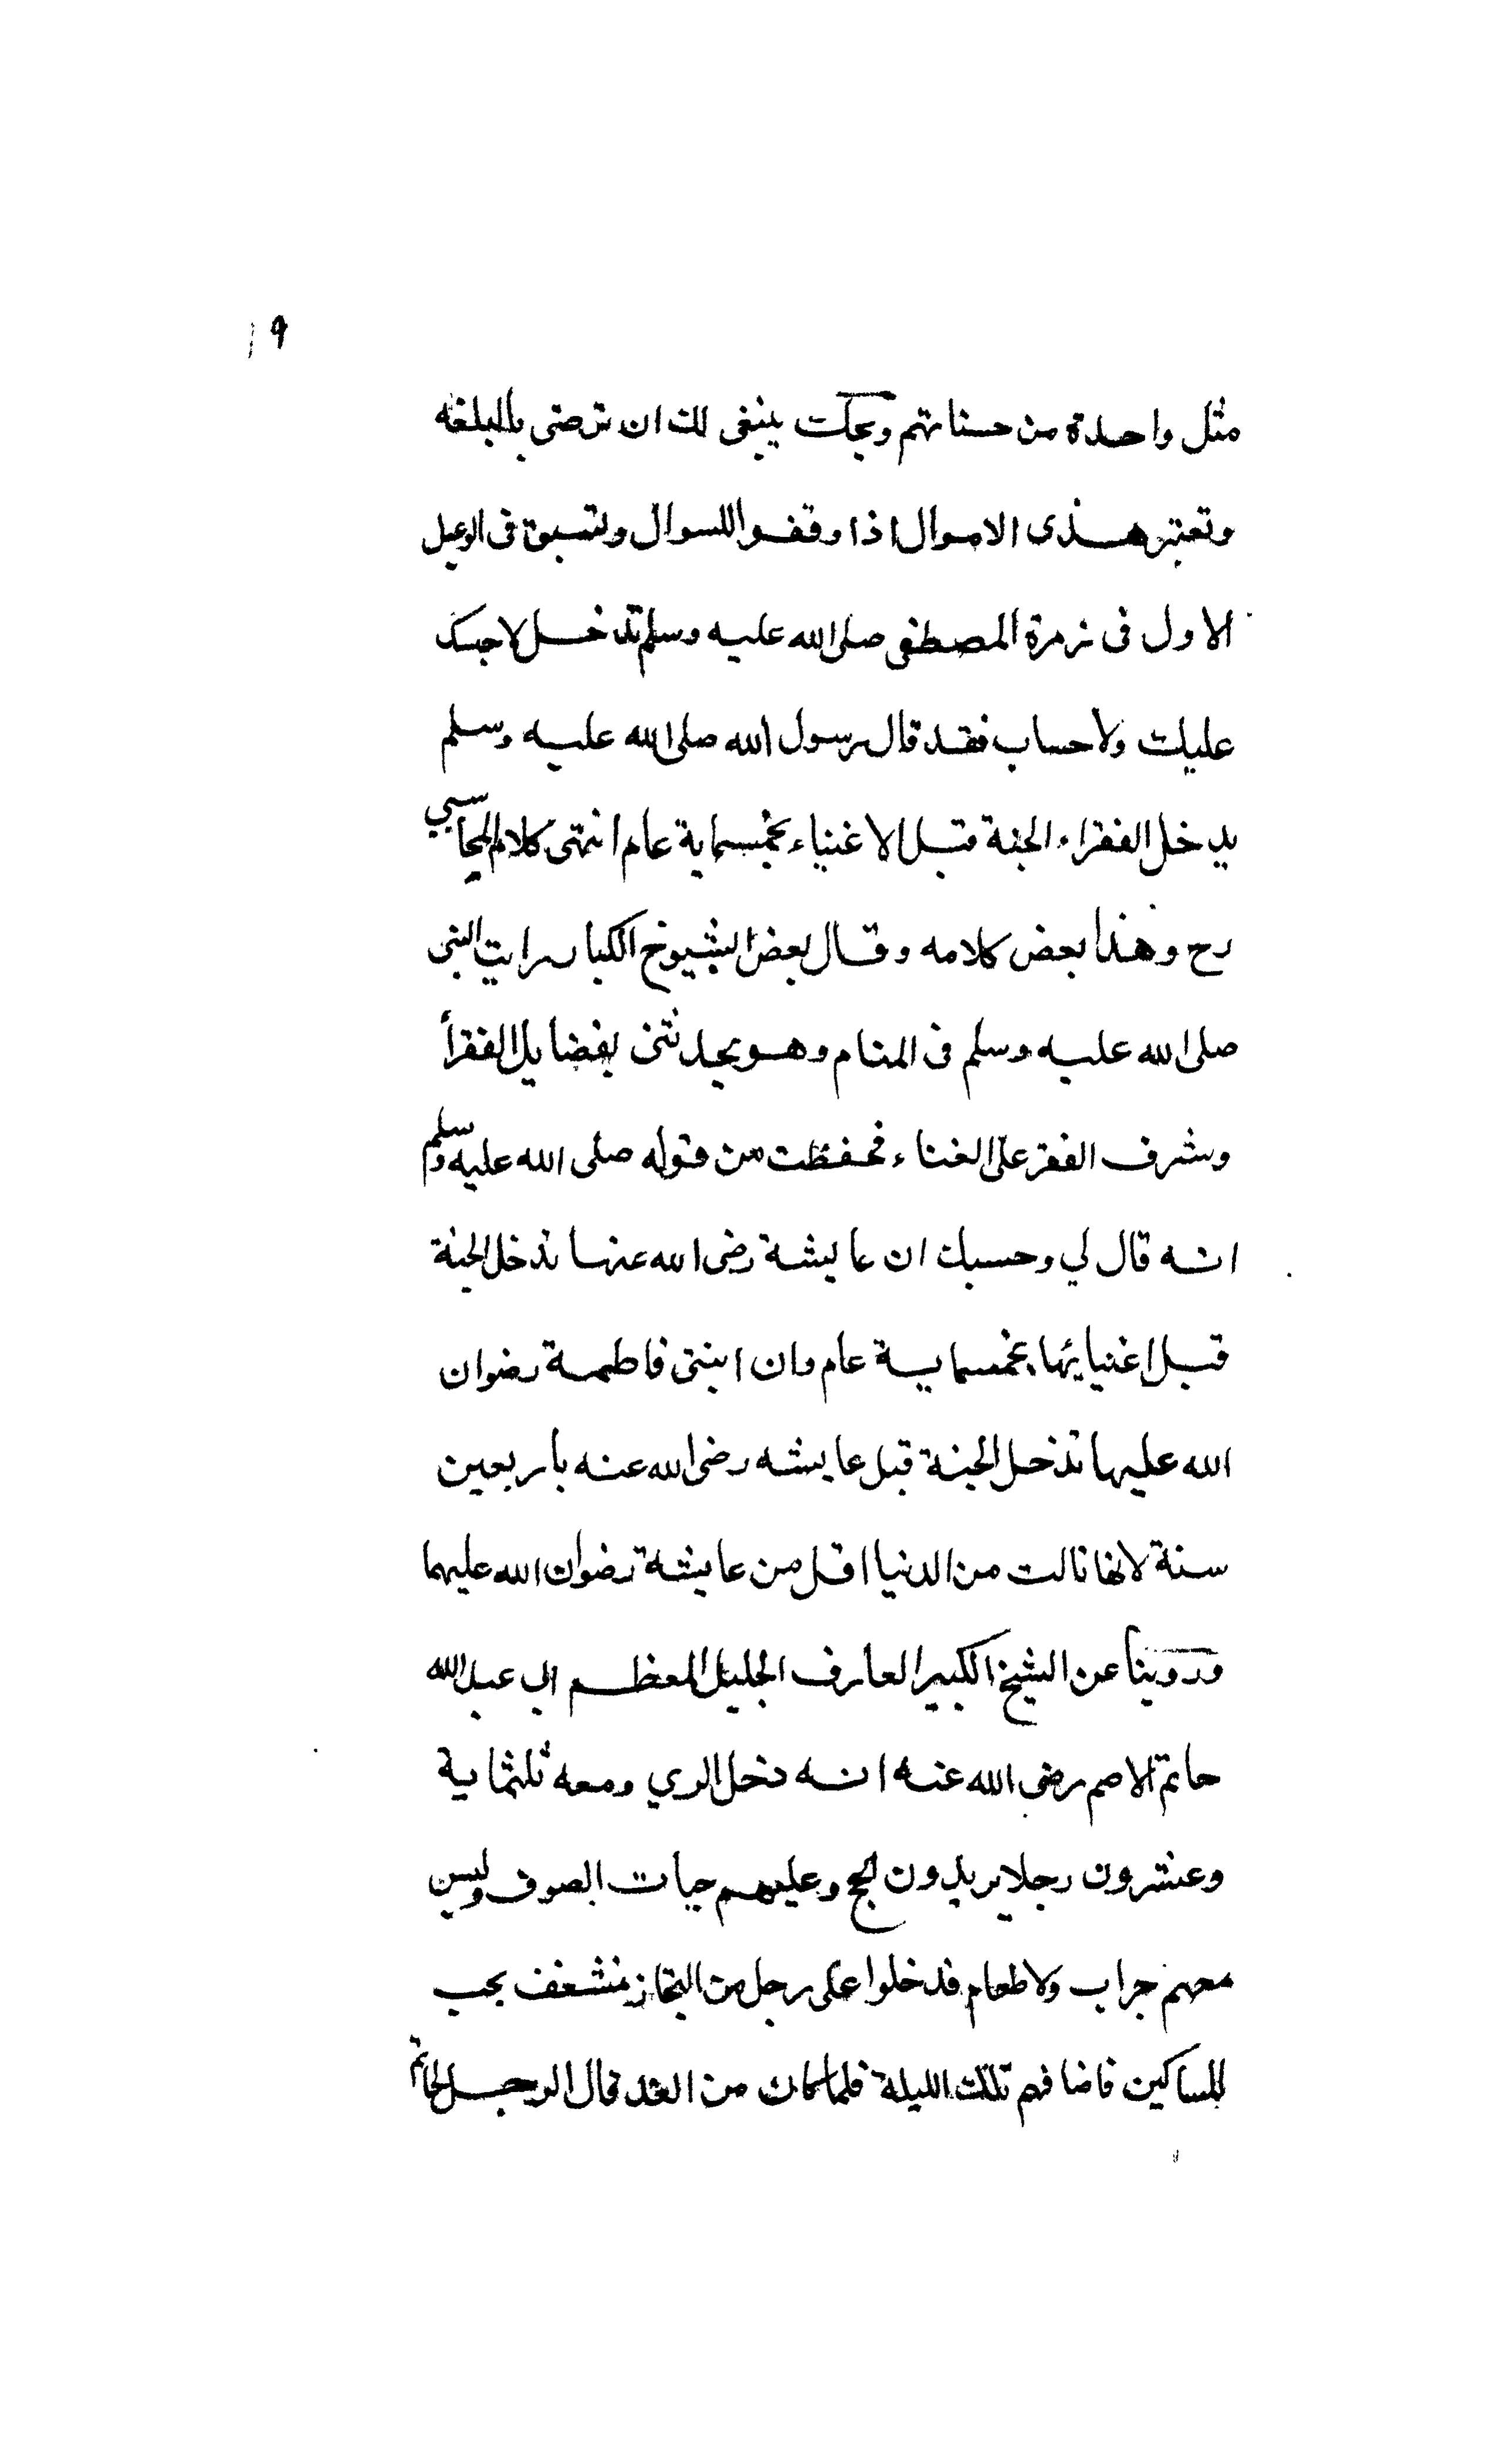 ٩
مثل واحدة من حسناتهم ويحك ينبغى لك ان ترضى بالبلغه
وتعتبر هذى الاموال اذا وقفوا للسوال ولتسبق فى الرعيل
الاول فى زمرة المصطفى صلى الله عليه وسلم تدخل لاحبك
عليك ولاحساب فقد قال رسول الله صلى الله عليه وسلم
يدخل الفقراء الجنة قبل الاغنياء بخمسماية عام انتهى كلام المحاسبي
رح وهذا بعض كلامه وقال بعض الشيوخ الكبار رايت النبى
صلى الله عليه وسلم فى المنام وهو يحدثنى بفضايل الفقرأ
وشرف الفقر على الغناء فحفظت من قوله صلى الله عليه وسلم
انه قال لي وحسبك ان عايشة رضى الله عنها تدخل الجنة
قبل اغنيايها بخمسماية عام وان ابنتى فاطمة رضوان
الله عليها تدخل الجنة قبل عايشه رضى الله عنه بأربعين
سنة لانها نالت من الدنيا اقل من عايشة رضوان الله عليهما
وروينا عن الشيخ الكبير العارف الجليل المعظم ابي عبد الله
حاتم الاصم رضى الله عنه انه دخل الري ومعه ثلثماية
وعشرون رجلا يريدون الحج وعليهم جبات الصوف وليس
معهم جراب ولاطعام فدخلوا على رجل من التجار منشغف بحب
المساكين فاضافهم تلك الليلة فلما كان من الغد قال الرجل لحاتم